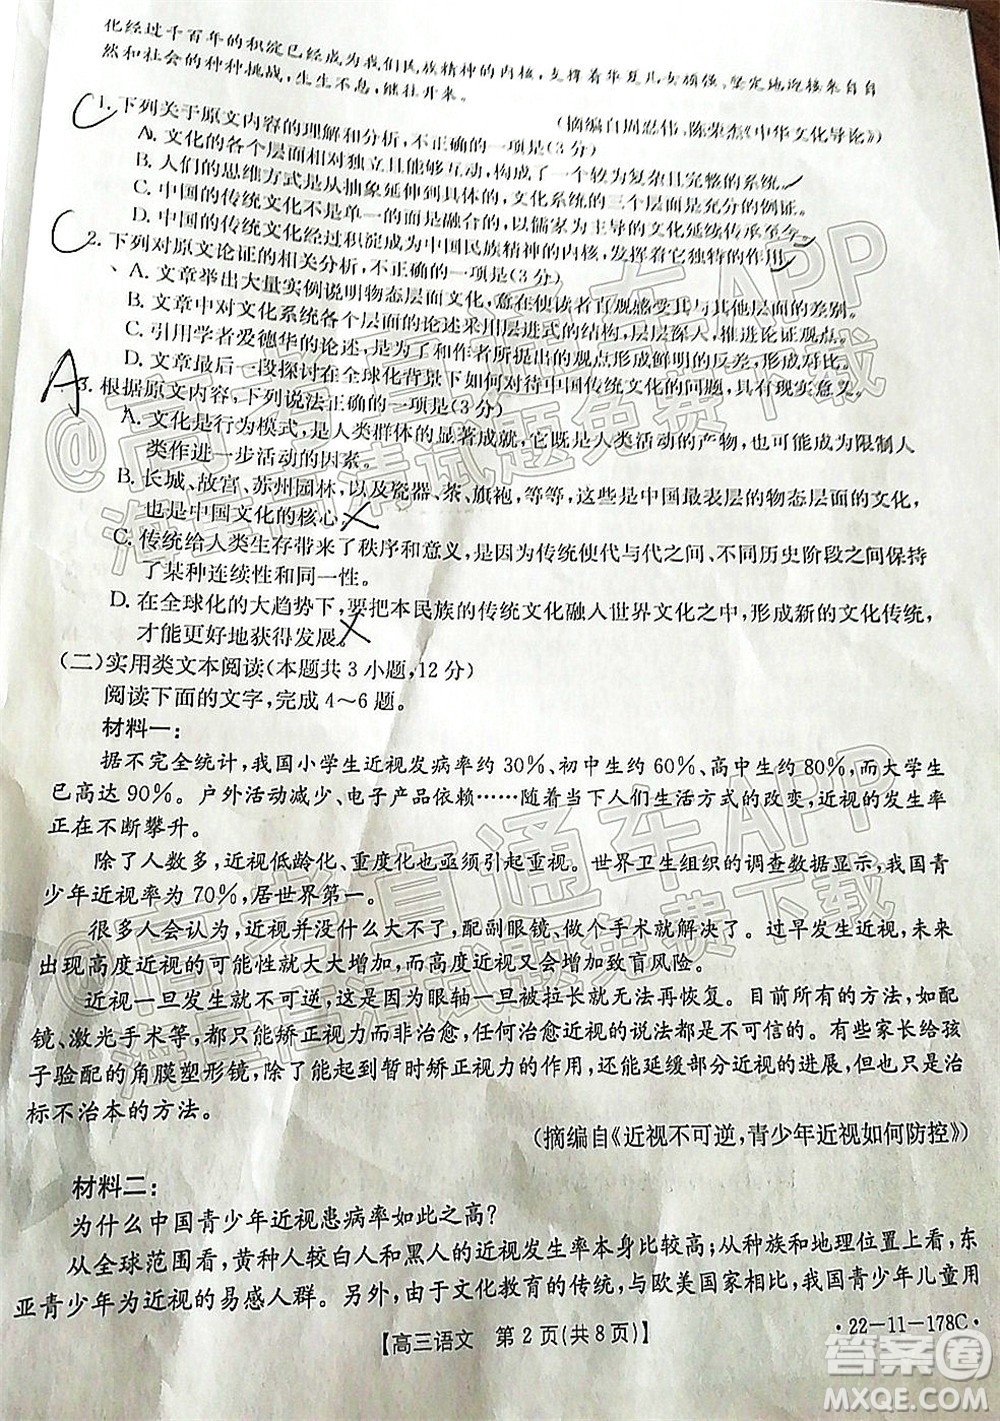 化经过千百年的积淀已经成为我们民族精神的内核,支撑着华夏儿女顽强、坚定地迎接来自自
然和社会的种种挑战,生生不息,继往开来。
(摘编自周忍伟、陈荣杰《中华文化导论》)
C 1. 下列关于原文内容的理解和分析,不正确的一项是(3分)
A. 文化的各个层面相对独立且能够互动,构成了一个较为复杂且完整的系统。
B. 人们的思维方式是从抽象延伸到具体的,文化系统的三个层面是充分的例证。
C. 中国的传统文化不是单一的而是融合的,以儒家为主的传统文化延续传承至今。
D. 中国的传统文化经过积淀成为中国民族精神的内核,发挥着它独特的作用。
C 2. 下列对原文论证的相关分析,不正确的一项是(3分)
A. 文章举出大量实例说明物态层面文化,意在使读者直观感受其与其他层面的差别。
B. 文章中对文化系统各个层面的论述采用层进式的结构,层层深入,推进论证观点。
C. 引用学者爱德华的论述,是为了与其他的观点形成鲜明的反差,形成对比。
D. 文章最后一段探讨在全球化背景下如何对待中国传统文化的问题,具有现实意义。
A 3. 根据原文内容,下列说法正确的一项是(3分)
A. 文化是行为模式,是人类群体的显著成就,它既是人类活动的产物,也可成为限制人
类作进一步活动的因素。
B. 长城、故宫、苏州园林,以及瓷器、茶、旗袍,等等,这些是中国最表层的物态层面的文化,
也是中国文化的核心。
C. 传统给人类生存带来了秩序和意义,使一种文化的代与代之间、不同历史阶段之间保持
了某种连续性和同一性。
D. 在全球化的大趋势下,要把本民族的传统文化融入世界文化之中,形成新的文化传统,
才能更好地获得发展。
(二)实用类文本阅读(本题共3小题,12分)
阅读下面的文字,完成4~6题。
材料一:
据不完全统计,我国小学生近视发病率约30%、初中生约60%、高中生约80%,而大学生
已高达90%。户外活动减少、电子产品依赖……随着当下人们生活方式的改变,近视的发生率
正在不断攀升。
除了人数多,近视低龄化、重度化也亟须引起重视。世界卫生组织的调查数据显示,我国青
少年近视率为70%,居世界第一。
很多人会认为,近视没什么大不了,配副眼镜、做个手术就解决了。过早发生近视,未来
出现高度近视的可能性就大大增加,而高度近视又会增加致盲风险。
近视一旦发生就不可逆,这是因为眼轴一旦被拉长就无法再恢复。目前所有的方法,如配
镜、激光手术等,都只能矫正视力而非治愈,任何治愈近视的说法都是不可信的。有些家长给孩
子验配的角膜塑形镜,除了能起到暂时矫正视力的作用,还能延缓部分近视的进展,这些都是治
标不治本的方法。
(摘编自《近视不可逆,青少年近视如何防控》)
材料二:
为什么中国青少年近视患病率如此之高?
从全球范围看,黄种人较白人和黑人的近视发生率本身比较高;从种族和地理位置上看,东
亚青少年为近视的易感人群。另外,由于文化教育的传统,与欧美国家相比,我国青少年儿童用
【高三语文 第2页(共8页)】
·22-11-178C·
@高考直通车APP
海量高清试题免费下载
@高考直通车APP
海量高清试题免费下载
答案圈
MXQE.COM